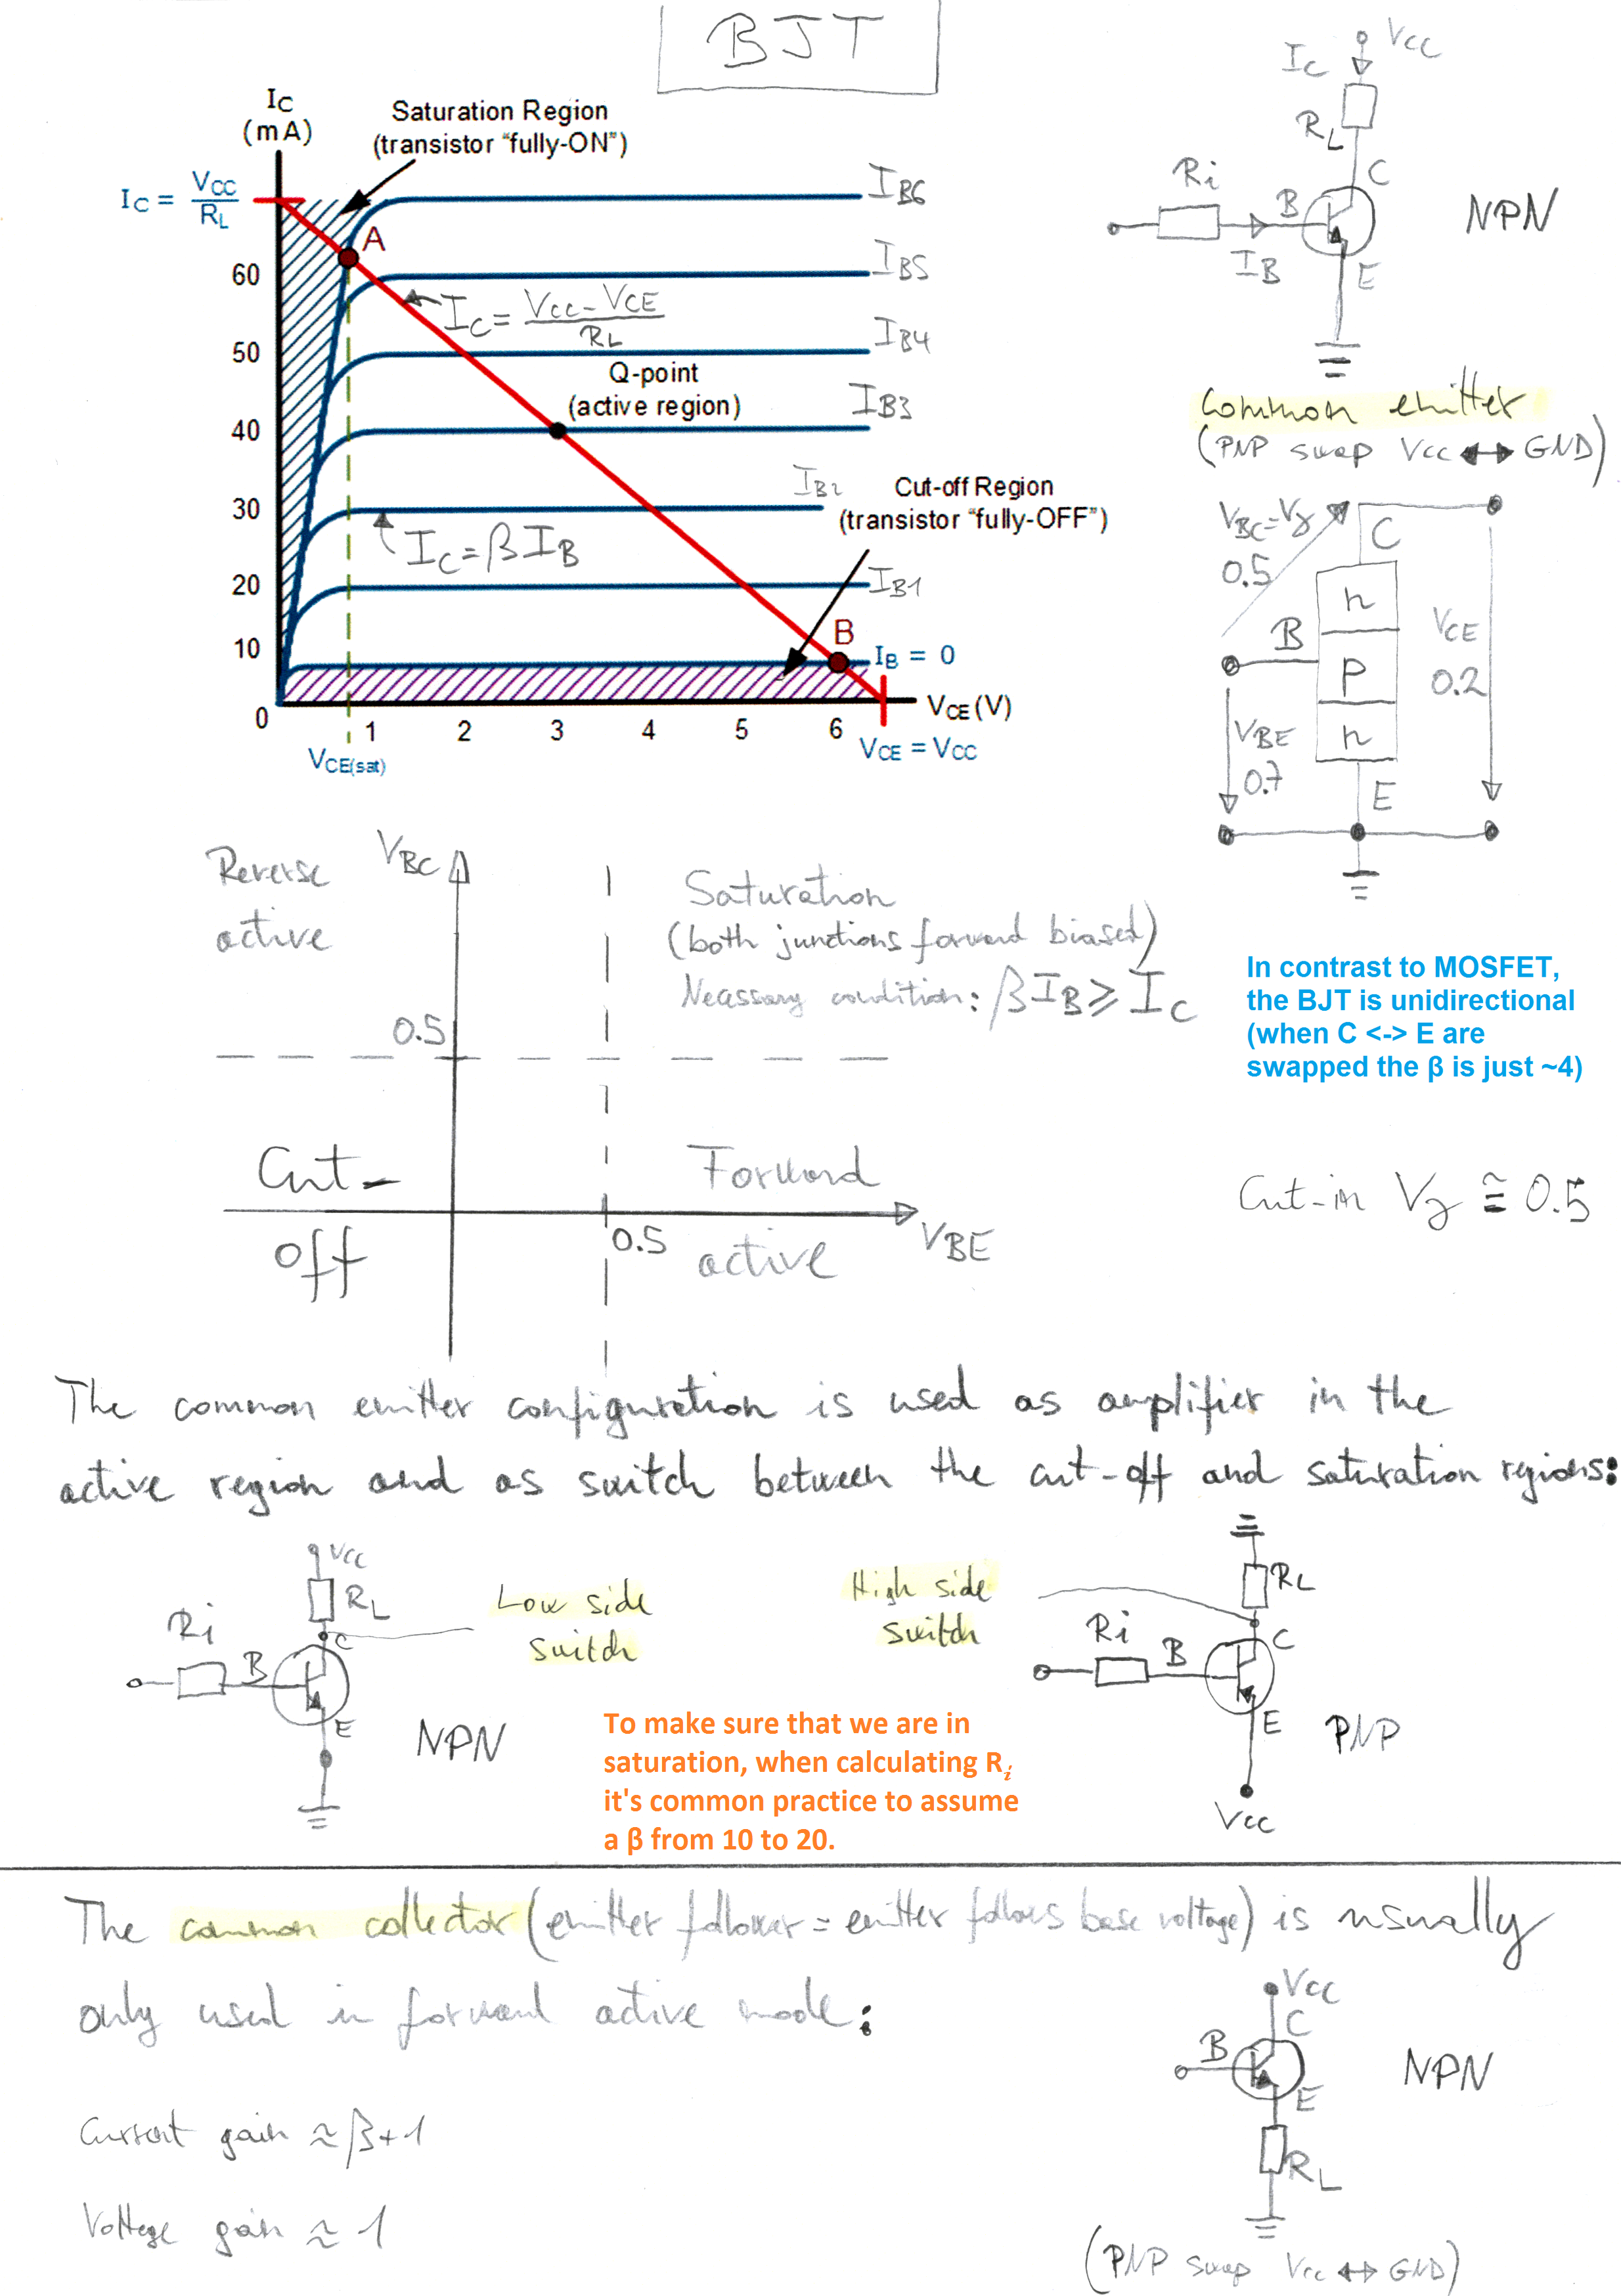 BJT
IC
(mA)
Saturation Region
(transistor "fully-ON")
IC = VCC
RL
A
60
50
40
30
20
10
0
IB6
IB5
IC = VCC - VCE
RL
IB4
Q-point
(active region)
IB3
IB2
Cut-off Region
(transistor "fully-OFF")
IC = βIB
IB1
B
IB = 0
1
2
3
4
5
6
VCE (V)
VCE(sat)
VCE = VCC
VCC
IC
RL
C
Ri
B
IB
E
NPN
common emitter
(PNP swap VCC ↔ GND)
VBC=Vγ
0.5
C
n
B
p
n
VCE
0.2
VBE
0.7
E
Reverse
active
VBC
Saturation
(both junctions forward biased)
Necassary condition: βIB ⩾ IC
0.5
Cut-
off
Forward
active
0.5
VBE
In contrast to MOSFET,
the BJT is unidirectional
(when C <-> E are
swapped the β is just ~4)
Cut-in Vγ ≅ 0.5
The common emitter configuration is used as amplifier in the
active region and as switch between the cut-off and saturation regions:
VCC
RL
Ri
B
C
E
NPN
Low side
switch
High side
switch
RL
Ri
B
C
E
PNP
VCC
To make sure that we are in
saturation, when calculating Ri
it's common practice to assume
a β from 10 to 20.
The common collector (emitter follower = emitter follows base voltage) is usually
only used in forward active mode:
Current gain ≈ β+1
Voltage gain ≈ 1
VCC
C
B
E
NPN
RL
(PNP swap VCC ↔ GND)